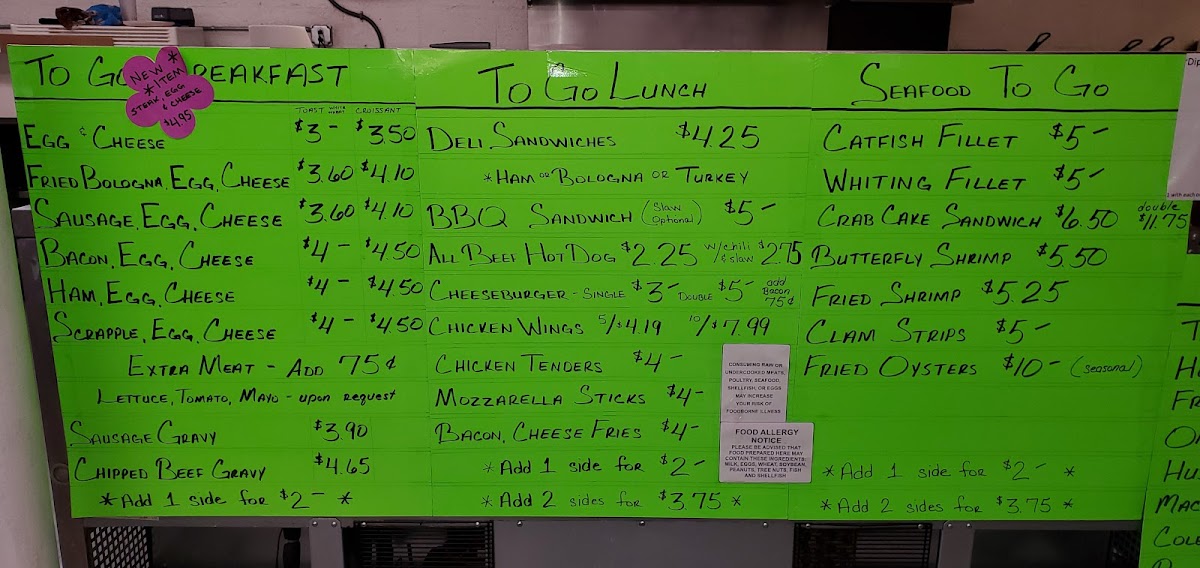 To Go Breakfast
NEW *
* ITEM
STEAK, EGG
& CHEESE
$4.95
TOAST WHITE WHEAT CROISSANT
EGG & CHEESE $3- $3.50
FRIED BOLOGNA, EGG, CHEESE $3.60 $4.10
SAUSAGE, EGG, CHEESE $3.60 $4.10
BACON, EGG, CHEESE $4- $4.50
HAM, EGG, CHEESE $4- $4.50
SCRAPPLE, EGG, CHEESE $4- $4.50
EXTRA MEAT - ADD 75¢
LETTUCE, TOMATO, MAYO - upon request
SAUSAGE GRAVY $3.90
CHIPPED BEEF GRAVY $4.65
* Add 1 side for $2- *
To Go Lunch
DELI SANDWICHES $4.25
* HAM or BOLOGNA or TURKEY
BBQ SANDWICH (Slaw Optional) $5-
ALL BEEF HOT DOG $2.25 w/chili & slaw $2.75
CHEESEBURGER - SINGLE $3- DOUBLE $5- add Bacon 75¢
CHICKEN WINGS 5/$4.19 10/$7.99
CHICKEN TENDERS $4-
MOZZARELLA STICKS $4-
BACON, CHEESE FRIES $4-
* Add 1 side for $2-
* Add 2 sides for $3.75 *
CONSUMING RAW OR
UNDERCOOKED MEATS,
POULTRY, SEAFOOD,
SHELLFISH, OR EGGS
MAY INCREASE
YOUR RISK OF
FOODBORNE ILLNESS
FOOD ALLERGY
NOTICE
PLEASE BE ADVISED THAT
FOOD PREPARED HERE MAY
CONTAIN THESE INGREDIENTS:
MILK, EGGS, WHEAT, SOYBEAN,
PEANUTS, TREE NUTS, FISH
AND SHELLFISH
SEAFOOD TO GO
CATFISH FILLET $5-
WHITING FILLET $5-
CRAB CAKE SANDWICH $6.50 double $11.75
BUTTERFLY SHRIMP $5.50
FRIED SHRIMP $5.25
CLAM STRIPS $5-
FRIED OYSTERS $10- (seasonal)
* Add 1 side for $2- *
* Add 2 sides for $3.75 *